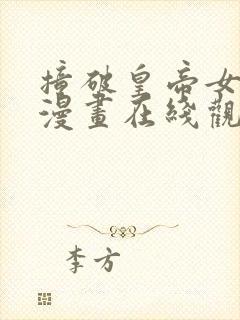 撞破皇帝女
漫畫在綫觀
李方